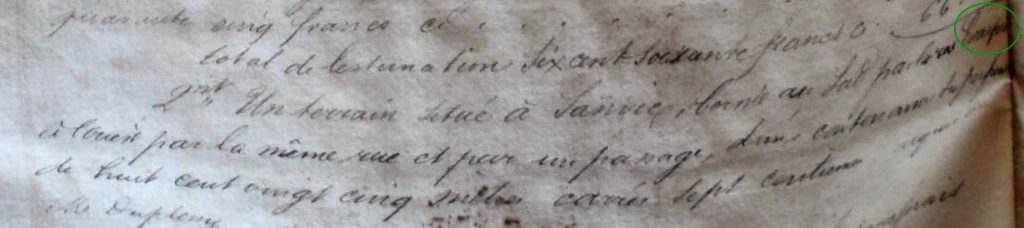 quarante cinq francs ci 66
total de l'estimation Six cent soixante francs ci
2nt Un terrain situé à Sanvic, borné au Sud par la rue
à l'ouest par la même rue et par un passage, d'une contenance
de huit cent vingt cinq mètres carrés sept centième
Me Dupleny